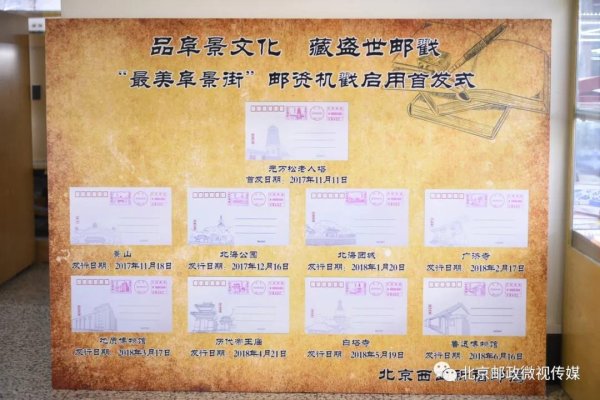 品阜景文化 藏盛世邮戳
“最美阜景街”邮资机戳启用首发式
元万松老人塔
首发日期：2017年11月11日
景山
发行日期：2017年11月18日
北海公园
发行日期：2017年12月16日
北海团城
发行日期：2018年1月20日
广济寺
发行日期：2018年2月17日
地质博物馆
发行日期：2018年3月17日
历代帝王庙
发行日期：2018年4月21日
白塔寺
发行日期：2018年5月19日
鲁迅博物馆
发行日期：2018年6月16日
北京西
北京邮政微视传媒